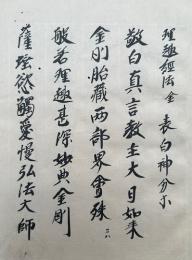 理趣経法 金 表白神分等
敬白真言教主大日如来
金剛胎蔵両部界會殊ハ
般若理趣甚深妙典金剛
薩埵慾觸愛慢弘法大師